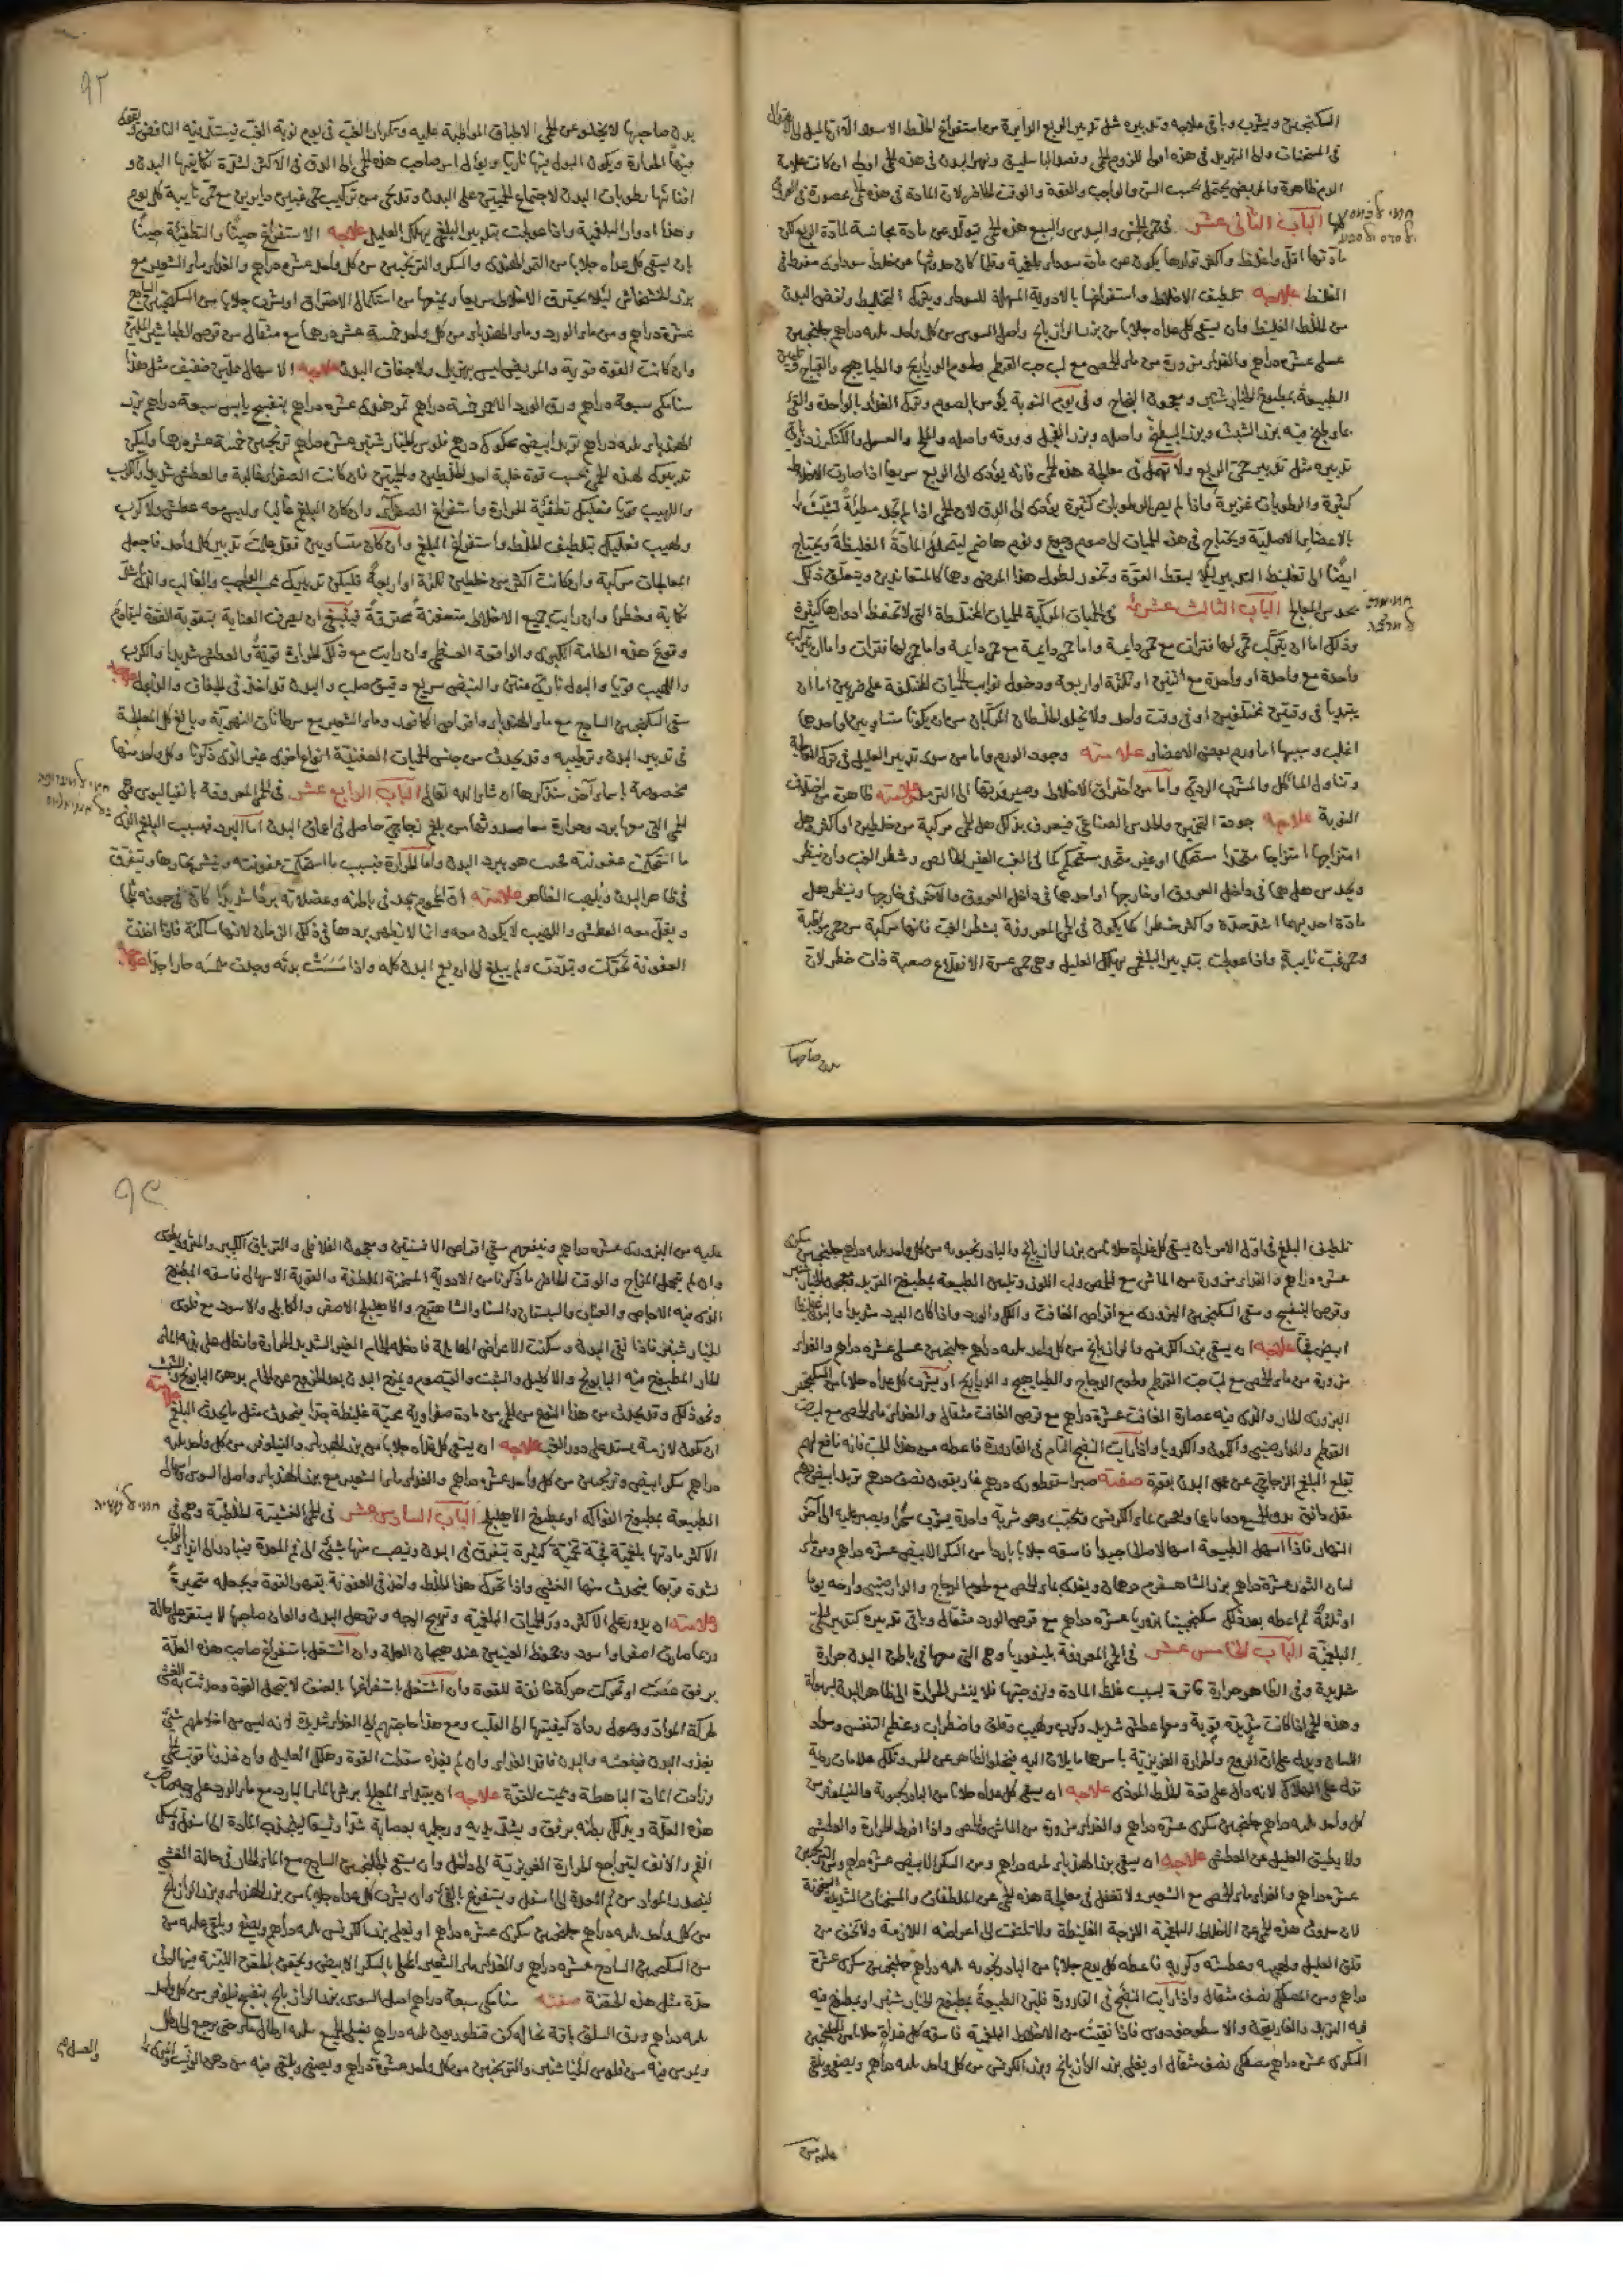 السكنجبين ويشرب وباقى علاجه وتدبيره مثل تدبير الربع الدايرة من استفراغ الخلط الاسود
فى المسخنات والى التبريد فى هذه اولى للزوم الحمى وفصد الباسليق
الدم ظاهرة والمريض يحتمل بحسب السن والواجب والقوة والوقت الحاضر لان المادة فى هذه الحمى محصورة فى
الباب الثانى عشر فى حمى الخمس والسدس والسبع هذه الحمى تتولد عن مادة مجانسة لمادة الربع لكن
مادتها اقل واغلظ واكثر تولدها يكون عن مادة سوداوية بلغمية وقلما كان حدوثها عن خلط سوداوى مفرط فى
الغلظ علاجه تلطيف الاخلاط واستفراغها بالادوية المسهلة للسوداء وترك التخليط ونفض البدن
من الخلط الغليظ وان يسقى كل غداة جلابا من بزر الرازيانج واصل السوس من كل واحد دراهم جلنجبين
عسلى عشرة دراهم والغذاء مزورة من ماء الحمص مع لب حب القرطم ولحوم الدراريج والطياهيج والقباج
الطبيعة بمطبوخ الخيارشنبر ومعجون النجاح وفى يوم النوبة يؤمر بالصوم وترك الغذاء بالواحدة والقئ
بماء طبخ فيه بزر الشبث وبزر البطيخ واصله وبزر الفجل وورقه واصله والملح والعسل
تدبيره مثل تدبير حمى الربع ولا تهمل فى معالجة هذه الحمى فانه يؤدى الى الربع سريعا اذا صارت الاخلاط
كثيرة والرطوبات غزيرة واذا لم يصر الرطوبات كثيرة يؤدى الى الدق لان الحمى اذا لم تجد مطية تشبثت
بالاعضاء الاصلية ويحتاج فى هذه الحميات الى صوم وجوع ونوم هاضم ليتحلل المادة الغليظة ويحتاج
ايضا الى تغليظ التدبير لئلا يسقط القوة وتخور لطول هذا المرض وهما كالمتعاندين ويتعلق ذلك
بحدس المعالج الباب الثالث عشر فى الحميات المركبة الحميات المختلطة التى لا تحفظ ادوارها كثيرة
وذلك اما ان يتركب حمى لها فترات مع حمى دايمة واما حمى دايمة مع حمى دايمة واما حمى لها فترات
واحدة مع واحدة او واحدة مع اثنتين او ثلثة او اربعة ودخول نوايب الحميات المختلفة على ضربين اما ان
يبتديا فى وقتين مختلفين او فى وقت واحد ولا يخلو الخلطان المركبان من ان يكونا متساويين او احدهما
اغلب وسببها اما ورم بعض الاعضاء علامته وجود الورم واما من سوء تدبير العليل فى
وتناول الماكل والمشرب الردى واما من احتراق الاخلاط وصيرورتها الى الترمد علامته ظاهرة من اختلاف
النوبة علاجه جودة التمييز والحدس الصناعى فيعرف بذلك هل الحمى مركبة من خلطين او اكثر وهل
امتزاجها امتزاجا متحدا مستحكما او غير متحد مستحكم كما فى الغب الغير الخالص وشطر الغب وان ينظر
ويحدس هل هما فى داخل العروق او خارجها او احدهما فى داخل العروق والاخر فى خارجها وينظر هل
مادة احديهما اشد حدة واكثر خطرا كما يكون فى الحمى المعروفة بشطر الغب فانها مركبة من حمى مواظبة
وحمى غب نايبة واذا عولجت بتدبير البلغمى يهلك العليل وهى حمى عسرة الاقلاع صعبة ذات خطر لان
بدن صاحبها
٩٢
بدن صاحبها لا يخلو عن الحمى الاطباق المواظبة عليه وتكرار الغب فى يوم نوبة الغب
منها الحرارة ويكون البول فيها ناريا ويؤل امر صاحب هذه الحمى الى الدق فى الاكثر لشدة نكايتها البدن و
افنائها رطوبات البدن لاجتماع الحميتين على البدن وقد يكون من تركيب حمى غبين دايرين مع حمى نايبة كل يوم
وهذا ادوار البلغمية واذا عولجت بتدبير البلغمى يهلك العليل علاجه الاستفراغ حينا والتطفئة حينا
بان يسقى كل غداة جلابا من التمر الهندى والسكر والترنجبين من كل واحد عشرة دراهم والغذاء ماء الشعير مع
بزر الخشخاش لئلا يحترق الاخلاط سريعا ويمنعها من استكمال الاحتراق او يشرب جلابا من السكنجبين الساذج
عشرة دراهم ومن ماء الورد وماء الهندباء من كل واحد خمسة عشر درهما مع مثقال من قرص الطباشير الملين
وان كانت القوة قوية والمريض ليس بهزيل ولا جفاف البدن علاجه الاسهال بملين خفيف مثل هذا
سنا مكى سبعة دراهم ورق الورد الاحمر خمسة دراهم تمر هندى عشرة دراهم بنفسج يابس سبعة دراهم بزر
الهندباء دراهم تربد ابيض محكوك درهم فلوس الخيار شنبر عشرة دراهم ترنجبين خمسة عشر درهما وليكن
تدبيرك لهذه الحمى بحسب قوة غلبة احد الخلطين والحميتين فان كانت الصفراء غالبة والعطش شديدا والكرب
واللهيب قويا فعليك تطفئة الحرارة واستفراغ الصفراء وان كان البلغم غالبا وليس معه عطش ولا كرب
ولهيب فعليك بتلطيف الخلط واستفراغ البلغم وان كان متساويين فقد علمت تدبير كل واحد فاجعل
المعالجات مركبة وان كانت اكثر من خلطين ثلثة او اربعة فليكن تدبيرك بحسب الواجب والغالب والذى اشد
نكاية وخطرا وان رايت جميع الاخلاط متعفنة محترقة فينبغى ان يصرف العناية بتقوية القوة ليقاوم
وقوع هذه الطامة الكبرى والواقعة العظمى وان رايت مع ذلك الحرارة قوية والعطش شديدا والكرب
واللهيب قويا والبول ناريا منتنا والنبض سريع دقيق صلب والبدن قد اخذ فى الجفاف والذبول
سقى السكنجبين الساذج مع ماء الهندباء واقراص الكافور وماء الشعير مع سرطانات النهرية وبالغ كل المبالغة
فى تدبير البدن وترطيبه وقد يحدث من جنس الحميات العفنية انواع اخرى غير الذى ذكرنا وكل واحد منها
مخصوصة باسماء اخر سنذكرها ان شاء الله تعالى الباب الرابع عشر فى الحمى المعروفة بانفياليوس وهى
الحمى التى معها برد وحرارة معا وحدوثها من بلغم زجاجى حاصل فى اعماق البدن اما البرد فبسبب البلغم الذى
ما استحكمت عفونته بحسب هو يبرد البدن واما الحرارة فبسبب ما استحكمت عفونته وينشر بخارها ويتفرق
فى ظاهر البدن ويلهب الظاهر علامته ان المحموم يجد فى باطنه وعضلاته بردا شديدا كان فى جوفه ثلجا
ويقل معه العطش واللهيب لا يكون معه وانما لا يظهر بردها فى ذلك الزمان لانها ساكنة فاذا اخذت
العفونة تحركت وتبددت ولم يبلغ الى ان يعم البدن كله واذا مسست بدنه وجدت ملمسه حارا جدا علاجه
٩٣
تلطيف البلغم فى اول الامر بان يسقى كل غداة جلابا من بزر الرازيانج والبادرنجبويه من كل واحد دراهم جلنجبين سكرى
عشرة دراهم والغذاء مزورة من الماش مع الحمص ولب اللوز وتليين الطبيعة بمطبوخ التربد ومعجون الخيار شنبر
وقرص البنفسج وسقى السكنجبين البزورى مع اقراص الغافت والكل والورد واذا كان البرد شديدا والبول
ابيض نقيا علاجه ان يسقى بزر الكرفس والرازيانج من كل واحد دراهم جلنجبين عسلى عشرة دراهم والغذاء
مزورة من ماء الحمص مع لب حب القرطم ولحوم الدجاج والطياهيج والدراريج او يشرب كل غداة جلابا من السكنجبين
البزورى الحار والذى فيه عصارة الغافت عشرة دراهم مع قرص الغافت مثقال والغذاء ماء الحمص مع لب حب
القرطم والدارصينى والكمون والكرويا واذا رايت النضج التام فى القارورة فاعطه من هذا الحب فانه نافع لهم
يقلع البلغم الزجاجى عن عمق البدن بقوة صفته صبر اسقوطرى درهم غاريقون نصف درهم تربد ابيض درهم
مقل دانق يدق الجميع ويعجن بماء الكرفس ويحبب وهو شربة واحدة يشرب سحرا ويصبر عليه الى اخر
النهار فاذا اسهل الطبيعة اسهالا صالحا جيدا فاسقه جلابا باردا من السكر الابيض عشرة دراهم ومن ماء
لسان الثور عشرة دراهم بزر الشاهسفرم درهمان ويغذى بماء الحمص مع لحوم الدجاج والدارصينى وارحه يوما
او ثلثة ثم اعطه بعد ذلك سكنجبينا بزوريا عشرة دراهم مع قرص الورد مثقال وباقى تدبيره كتدبير الحمى
البلغمية الباب الخامس عشر فى الحمى المعروفة بليفوريا وهى التى معها فى باطن البدن حرارة
شديدة وفى الظاهر حرارة فاترة بسبب غلظ المادة ولزوجتها فلا ينشر الحرارة الى ظاهر البدن بسهولة
وهذه الحمى اذا كانت شديدة قوية ومعها عطش شديد وكرب ولهيب وقلق واضطراب وعظم التنفس وسواد
اللسان ويدل على ان الروح والحرارة الغريزية باسرها مايلان اليه فيخلو الظاهر عن الحر وتلك علامات ردية
تدل على الهلاك لانه دال على قوة الخلط الموذى علاجه ان يسقى كل غداة جلابا من البادرنجبويه والنيلوفر من
كل واحد دراهم جلنجبين سكرى عشرة دراهم والغذاء مزورة من الماش والحمص واذا افرط الحرارة والعطش
ولا يطيق العليل عن العطش علاجه ان يسقى بزر الهندباء دراهم ومن السكر الابيض عشرة دراهم ومن الترنجبين
عشرة دراهم والغذاء ماء الحمص مع الشعير ولا تغفل فى معالجة هذه الحمى عن الملطفات والمسخنات
لان حدوث هذه الحمى عن الاخلاط البلغمية اللزجة الغليظة ولا تلتفت الى اعراضه اللازمة ولا تخف من
قلق العليل ولهيبه وعطشه وكربه فاعطه كل يوم جلابا من البادرنجبويه دراهم جلنجبين سكرى عشرة
دراهم ومن المصطكى نصف مثقال واذا رايت النضج فى القارورة فلين الطبيعة بمطبوخ الخيار شنبر او بمطبوخ فيه
فيه التربد والغاريقون والاسطوخودوس فاذا نقيت من الاخلاط البلغمية فاسقه كل غداة جلابا من الجلنجبين
السكرى عشرة دراهم مصطكى نصف مثقال او يغلى بزر الرازيانج وبزر الكرفس من كل واحد دراهم ويصفى ويلقى
عليه من
عليه من البزورى عشرة دراهم وينفعهم سقى اقراص الافسنتين ومعجون الفلافلى والترياق الكبير والمثروديطوس
وان لم يحتمل المزاج والوقت الحاضر ما ذكرنا من الادوية المسخنة الملطفة والقوية الاسهال فاسقه المطبوخ
الذى فيه الاجاص والعناب والسبستان والسنا والشاهترج والاهليلج الاصفر والكابلى والاسود مع فلوس
الخيار شنبر فاذا نقى البدن وسكنت الاعراض الهايلة فادخله الحمام الغير الشديد الحرارة
الحار المطبوخ فيه البابونج والاكليل والشبث والقيصوم ويمرخ البدن بعد الخروج عن الحمام بدهن البابونج والشبث
ونحو ذلك وقد يحدث من هذا النوع من الحمى من مادة صفراوية محية غليظة جدا يحدث مثل ما يحدث البلغم علامته
ان تكون لازمة يستد على دور الغب علاجه ان يسقى كل غداة جلابا من بزر الهندباء والنيلوفر من كل واحد دراهم
دراهم سكر ابيض وترنجبين من كل واحد عشرة دراهم والغذاء ماء الشعير مع بزر الهندباء واصل السوس
الطبيعة بمطبوخ الفواكه او بمطبوخ الاهليلج الباب السادس عشر فى الحمى الغشية الخلطية وهى فى
الاكثر مادتها بلغمية فجة نية كثيرة يتفرق فى البدن وينصب منها شئ الى فم المعدة فيتادى الى القلب
لشدة قربها فيحدث منها الغشى واذا تحرك هذا الخلط واخذ فى العفونة يقهر القوة ويجعله متحيرة
علامته ان يدور على الاكثر دور الحميات البلغمية وتهيج الوجه وترهل البدن والوان صاحبها لا يستقر على حالة
وربما صار اصفر او اسود ونحو ظ العينين عند هيجان العلة وان اشتغل باستفراغ صاحب هذه العلة
برفق عصت او تحركت حركة خانقة للقوة وان اشتغل باستفراغها بالعنف لا يحتمل القوة وحدث به الغشى
لحركة المواد ووصول رداة كيفيتها الى القلب ومع هذا حاجتهم الى الغذاء شديدة لانه ليس من اخلاطهم شئ
يغذو البدن فينعشه والبدن فاقد الغذاء وان لم يغذه سقطت القوة وهلك العليل وان غذونا قويت الحمى
وزادت المادة الباهظة وخيبت القوة علاجه ان يبتدا المعالج برش الماء البارد مع ماء الورد على وجه صاحب
هذه العلة ويدلك بطنه برفق ويشد يديه ورجليه بعصابة شدا وثيقا ليجذب المادة الى اسفل ويمسك
الفم والانف ليتراجع الحرارة الغريزية الى داخل وان يسقى السكنجبين الساذج مع الماء الحار فى حالة الغشى
ليحدر المواد من فم المعدة الى اسفل ويستفرغ بالقئ وان يشرب كل غداة جلابا من بزر الهندباء وبزر الرازيانج
من كل واحد دراهم جلنجبين سكرى عشرة دراهم او يغلى بزر الكرفس دراهم ويصفى ويلقى عليه من
من السكنجبين الساذج عشرة دراهم والغذاء ماء الشعير المحلى بالسكر الابيض ويحقن بالحقن اللينة
حدة مثل هذه الحقنة صفته سنا مكى سبعة دراهم اصل السوس بزر الرازيانج بنفسج نيلوفر من كل واحد
دراهم ورق السلق باقة نخالة كف قنطوريون دراهم يغلى الجميع ارطال ماء حتى يرجع الى رطل
ويمرس فيه من فلوس الخيار شنبر والترنجبين من كل واحد عشرة دراهم ويصفى ويلقى فيه من دهن